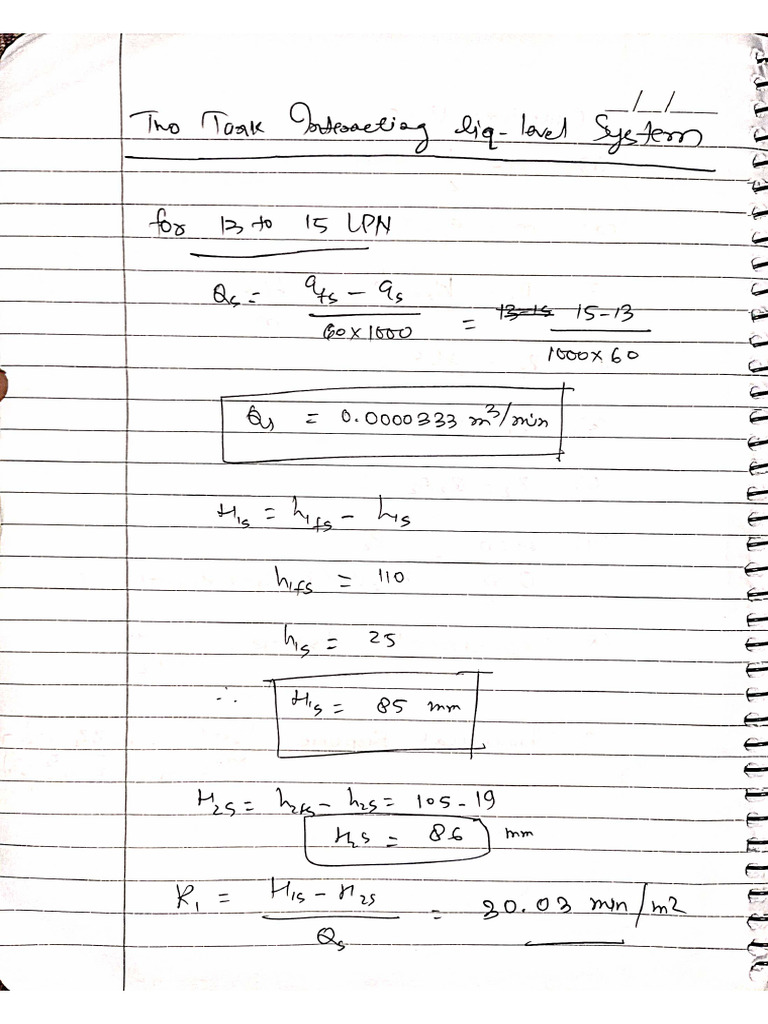 _/_/_
Two Tank Interacting liq-level System
for 13 to 15 LPM
Qs = (qfs - qs) / (60×1000) = 13-15 (15-13) / (1000×60)
Qs = 0.0000333 m³/min
H1s = h1fs - h1s
h1fs = 110
h1s = 25
∴ H1s = 85 mm
H2s = h2fs - h2s = 105 - 19
H2s = 86 mm
R1 = (H1s - H2s) / Qs = 30.03 min/m2